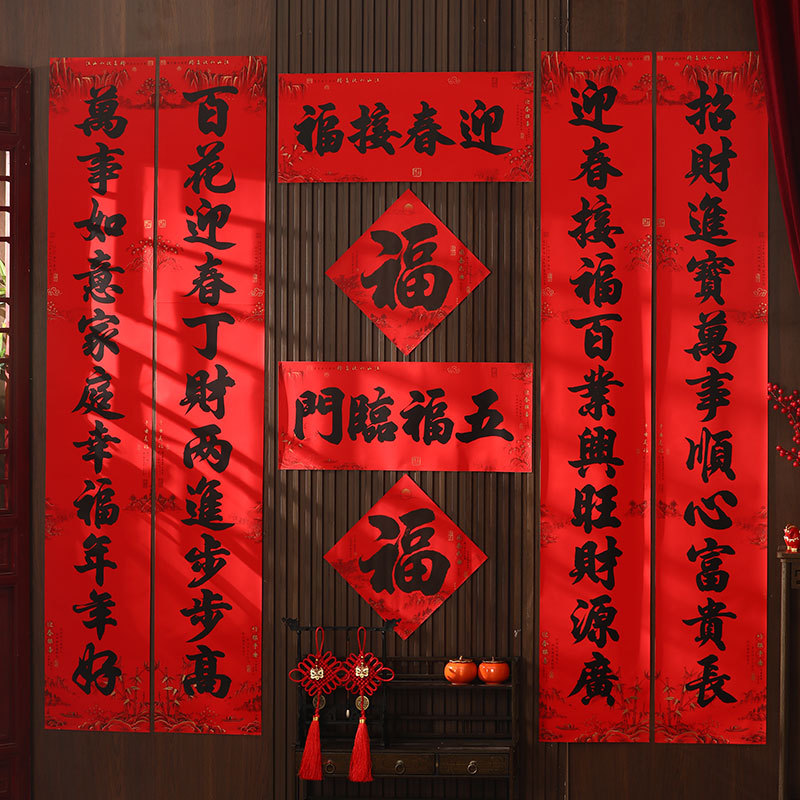 招財進寶萬事順心富貴長
迎春接福百業興旺財源廣
迎春接福
福
五福臨門
福
百花迎春丁財两進步步高
萬事如意家庭幸福年年好